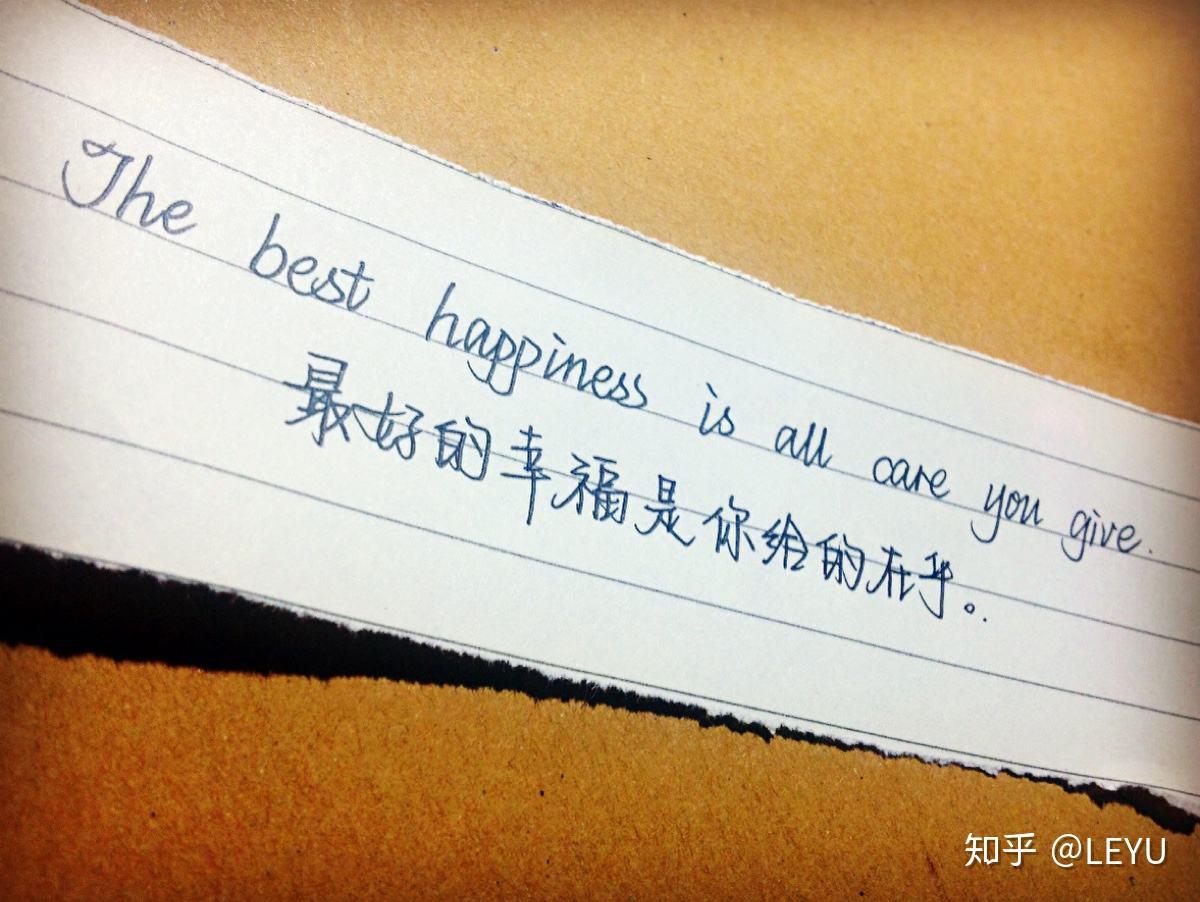 The best happiness is all care you give.
最好的幸福是你给的在乎。
知乎 @LEYU